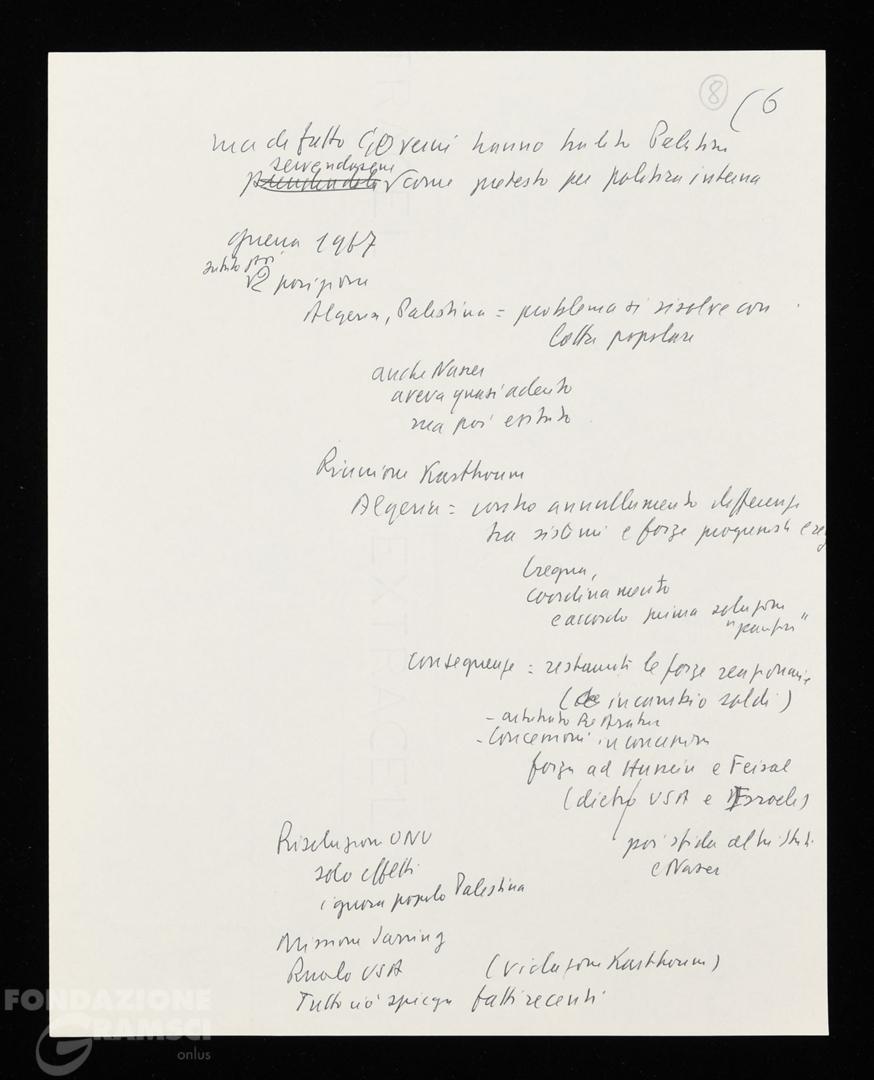 8 (6
ma di fatto Governi hanno tradito Palestina
servendosene
prendendola come pretesto per politica interna
guerra 1967
subito poi
2 posizioni
Algeria, Palestina = problema si risolve con
lotta popolare
anche Nasser
aveva quasi aderito
ma poi esitato
Riunione Karthoum
Algeria = contro annullamento differenze
tra sistemi e forze progressiste e reaz
tregua,
coordinamento
e accordo prima soluzione
"
Conseguenze = restaurati le forze reazionarie
(in cambio soldi)
-
- Concessioni in concessioni
forza ad Hussein e Feisal
(dietro USA e Israele)
poi sfida altri Stati
e Nasser
Risoluzione ONU
solo effetti
ignora popolo Palestina
Missione Jarring
Ruolo USA (violazione Karthoum)
Tutto ciò spiega fatti recenti
FONDAZIONE
GRAMSCI
onlus